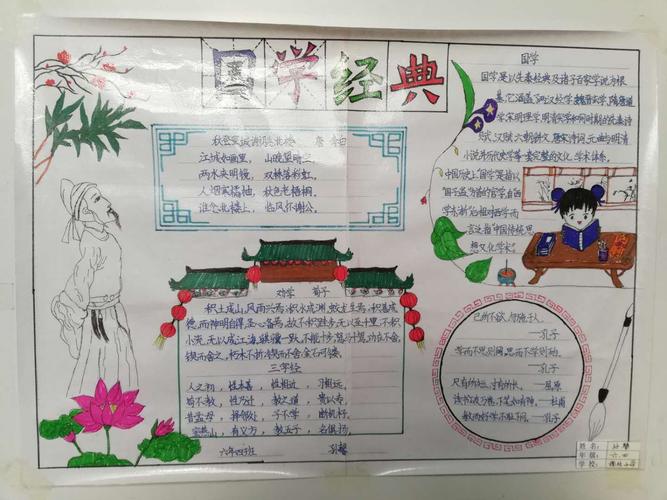 国学经典
秋登宣城谢脁北楼 唐 李白
江城如画里， 山晚望晴空
两水夹明镜， 双桥落彩虹，
人烟寒橘柚， 秋色老梧桐，
谁念北楼上， 临风怀谢公。
国学
国学是以先秦经典及诸子百家学说为根
基，它涵盖了两汉经学、魏晋玄学、隋唐道
学、宋明理学、明清实学和同时期的先秦诗
赋、汉赋、六朝骈文、唐宋诗词、元曲与明清
小说并历代史学等一套完整的文化、学术体系。
中国历史上"国学"是指以
"国子监"为首的官学，自"西
学东渐"后相对西学而
言泛指"中国传统思
想文化学术"。
劝学 荀子
积土成山，风雨兴焉；积水成渊，蛟龙生焉；积善成
德，而神明自得，圣心备焉。故不积跬步，无以至千里；不积
小流，无以成江海。骐骥一跃，不能十步；驽马十驾，功在不舍。
锲而舍之，朽木不折；锲而不舍，金石可镂。
三字经
人之初， 性本善， 性相近， 习相远，
苟不教， 性乃迁， 教之道， 贵以专，
昔孟母， 择邻处， 子不学， 断机杼，
窦燕山， 有义方， 教五子， 名俱扬，
六年四班
己所不欲，勿施于人。
——孔子
学而不思则罔，思而不学则殆。
——孔子
尺有所短，寸有所长。——屈原
读书破万卷，下笔如有神。——杜甫
敏而好学，不耻下问。——孔子
姓名：
年级：六.四
学校：